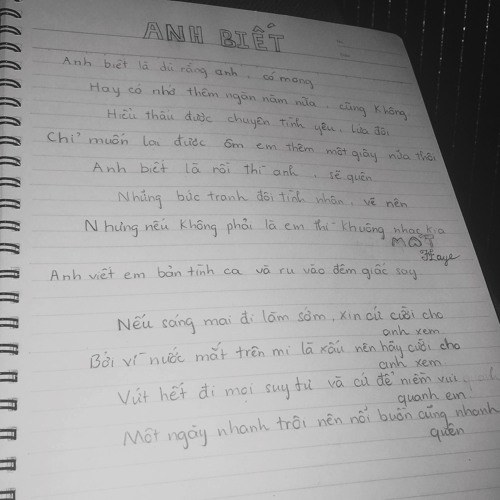 ANH BIẾT
Anh biết là dù rằng anh, có mang
Hay có nhớ thêm ngàn năm nữa, cũng không
Hiểu thấu được chuyện tình yêu, lứa đôi
Chỉ muốn lại được ôm em thêm một giây nữa thôi
Anh biết là rồi thì anh, sẽ quên
Những bức tranh đôi tình nhân, vẽ nên
Nhưng nếu không phải là em thì khuông nhạc kia
Anh viết em bản tình ca và ru vào đêm giấc say
Nếu sáng mai đi làm sớm, xin cứ cười cho
anh xem
Bởi vì nước mắt trên mi là xấu nên hãy cười cho
anh xem
Vứt hết đi mọi suy tư và cứ để niềm vui
quanh em
Một ngày nhanh trôi nên nỗi buồn cũng nhanh
quên